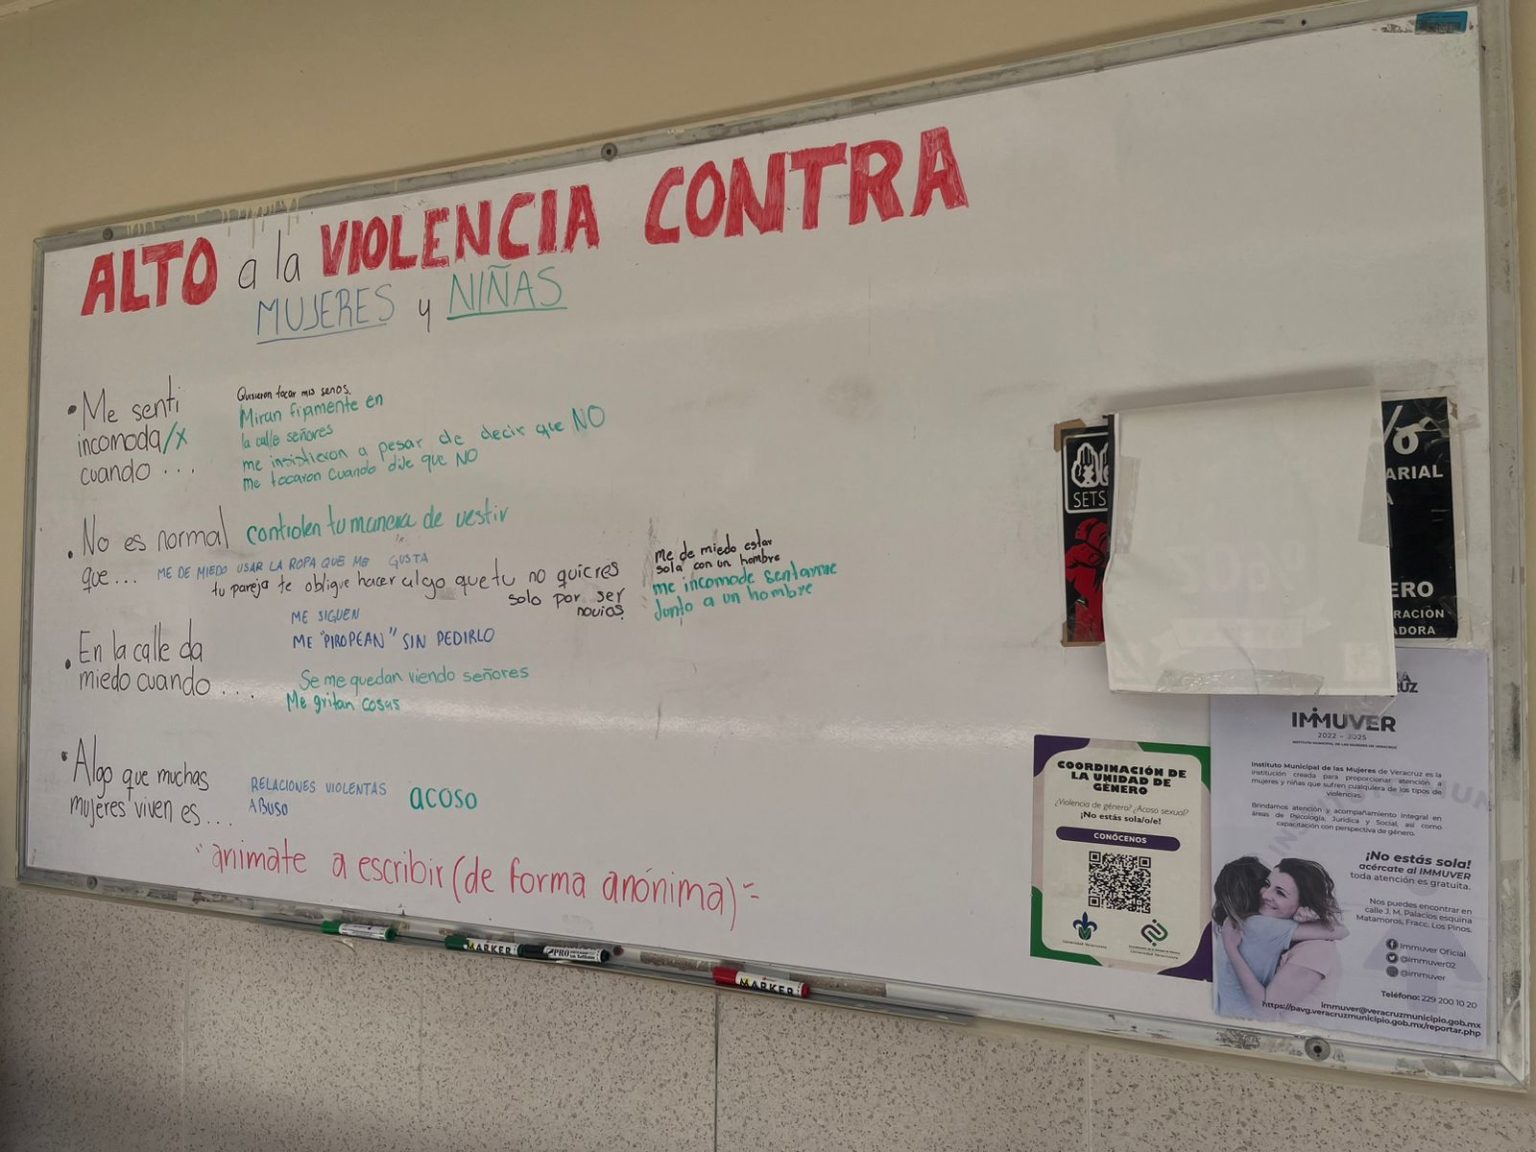 ALTO a la VIOLENCIA CONTRA
MUJERES y NIÑAS
• Me senti
incomoda/x
cuando...
Quisieron tocar mis senos
Miran fijamente en
la calle señores
me insistieron a pesar de decir que NO
me tocaron cuando dije que NO
• No es normal
que...
controlen tu manera de vestir
ME DE MIEDO USAR LA ROPA QUE ME GUSTA
tu pareja te obligue hacer algo que tu no quieres
solo por ser
novios
me de miedo estar
sola con un hombre
me incomode sentarme
Junto a un hombre
• En la calle da
miedo cuando....
ME SIGUEN
ME "PIROPEAN" SIN PEDIRLO
Se me quedan viendo señores
Me gritan cosas
• Algo que muchas
mujeres viven es...
RELACIONES VIOLENTAS
ABUSO
acoso
animate a escribir (de forma anónima)
MARKER
PRO
MARKER
SETS
%
ARIAL
A
ERO
RACIÓN
ADORA
COORDINACIÓN DE
LA UNIDAD DE
GÉNERO
¿Violencia de género? ¿Acoso sexual?
¡No estás sola/o/e!
CONÓCENOS
Universidad Veracruzana
RA
UZ
IMMUVER
2022 - 2025
INSTITUTO MUNICIPAL DE LAS MUJERES DE VERACRUZ
Instituto Municipal de las Mujeres de Veracruz es la
institución creada para proporcionar atención a
mujeres y niñas que sufren cualquiera de los tipos de
violencias.
Brindamos atención y acompañamiento integral en
áreas de Psicología, Jurídica y Social, así como
capacitación con perspectiva de género.
¡No estás sola!
acércate al IMMUVER
toda atención es gratuita.
Nos puedes encontrar en
calle J. M. Palacios esquina
Matamoros, Fracc. Los Pinos.
Immuver Oficial
@immuver02
@immuver
Teléfono: 229 200 10 20
immuver@veracruzmunicipio.gob.mx
https://pavg.veracruzmunicipio.gob.mx/reportar.php